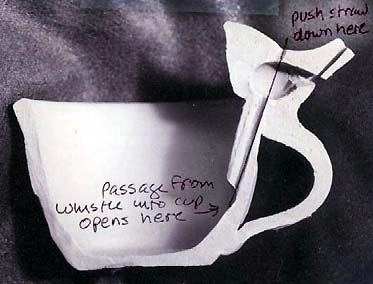 push straw
down here
Passage from
whistle into cup
opens here